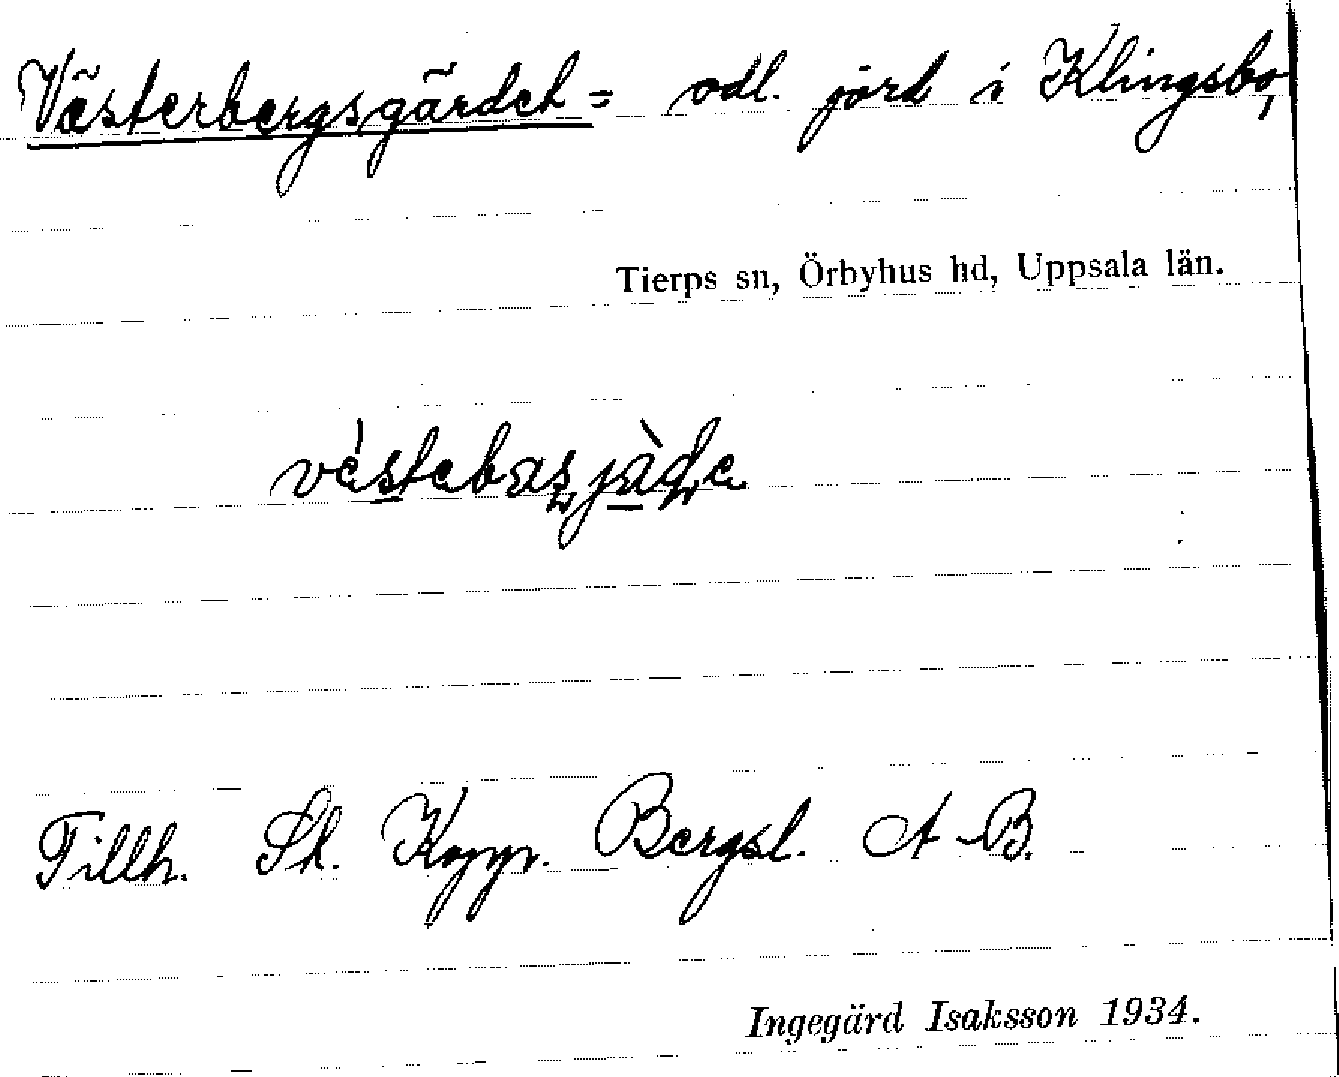 Västerbergsgärdet = odl. jord i Klingsbo,
Tierps sn, Örbyhus hd, Uppsala län.
Tillh. St. Kopp. Bergsl. A-B.
Ingegärd Isaksson 1934.